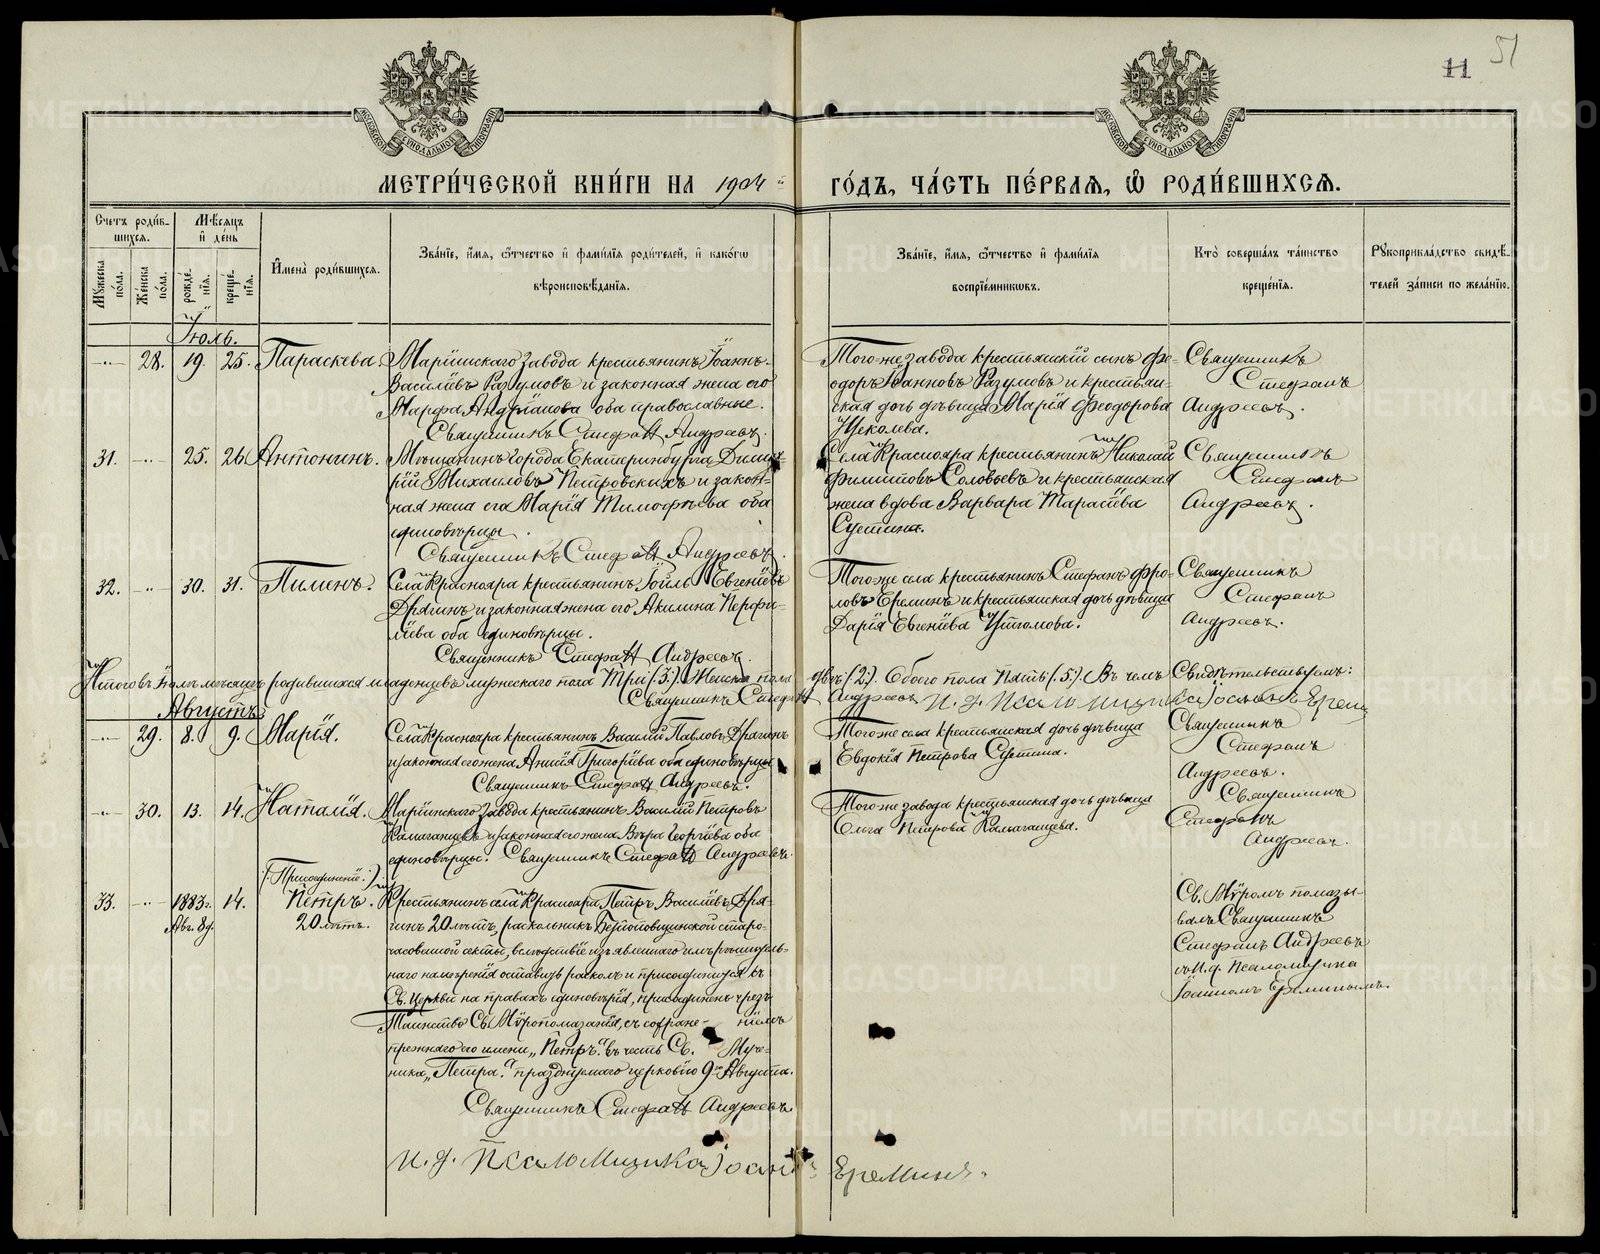 11 51
МЕТРИ́ЧЕСКОЙ КНИ́ГИ НА 1904 й ГО́ДЪ, ЧА́СТЬ ПЕ́РВАЯ, Ѡ РОДИ́ВШИХСЯ.
Счетъ роди́в-
шихся.
Мѣ́сяцъ
и҆ де́нь
Му́жеска по́ла.
Же́нска по́ла.
рожде́-
нія.
креще́-
нія.
И҆мена̀ роди́вшихся.
Зва́ніе, и҆́мя, ѻ҆́тчество и҆ фами́лія роди́телей, и҆ како́гѡ
вѣроисповѣ́данія.
Зва́ніе, и҆́мя, ѻ҆́тчество и҆ фами́лія
воспріе́мниковъ.
Кто̀ соверша́лъ та́инство
креще́нія.
Рꙋкоприкла́дство свидѣ́-
телей за́писи по жела́нію.
Іюль.
-"- 28. 19. 25. Параскева.
Маріинскаго завода крестьянинъ Іоаннъ
Василіевъ Разумовъ и законная жена его
Марфа Андріанова оба православные.
Священникъ Стефанъ Андреевъ.
Того же завода крестьянскій сынъ Фе-
одоръ Іоанновъ Разумовъ и крестьян-
ская дочь дѣвица Марія Феодорова
Щеколева.
Священникъ
Стефанъ
Андреевъ.
31. -"- 25. 26. Антонинъ.
Мѣщанинъ города Екатеринбурга Дими-
рій Михаиловъ Петровскихъ и закон-
ная жена его Марія Тимофѣева оба
единовѣрцы.
Священникъ Стефанъ Андреевъ.
Села Краснояра крестьянинъ Николай
Филиповъ Соловьевъ и крестьянская
жена вдова Варвара Тарасіева
Сустина.
Священникъ
Стефанъ
Андреевъ.
32. -"- 30. 31. Пименъ.
Села Краснояра крестьянинъ Іоиль Евгеніевъ
Дрягинъ и законная жена его Акилина Перфи-
ліева оба единовѣрцы.
Священникъ Стефанъ Андреевъ.
Того же села крестьянинъ Стефанъ Фро-
ловъ Ереминъ и крестьянская дочь дѣвица
Дарія Евгеніева
Священникъ
Стефанъ
Андреевъ.
Итого въ Іюлѣ мѣсяцѣ родившихся младенцевъ мужескаго пола Три (3.) Женска пола двѣ (2.) Обоего пола Пять (.5.). Въ чемъ Свидѣтельствуемъ:
Священникъ Стефанъ Андреевъ И. д. Псаломщика Іоаннъ Ереминъ
Августъ
-"- 29. 8. 9. Марія.
Села Краснояра крестьянинъ Василій Павловъ Дрягинъ
и законная его жена Анисія Григоріева оба единовѣрцы
Священникъ Стефанъ Андреевъ.
Того же села крестьянская дочь дѣвица
Евдокія Петрова Сустина.
Священникъ
Стефанъ
Андреевъ.
-"- 30. 13. 14. Наталія.
Маріинскаго Завода крестьянинъ Василій Петровъ
Калаганцевъ и законная его жена Вѣра Георгіева оба
единовѣрцы. Священникъ Стефанъ Андреевъ.
Того же завода крестьянская дочь дѣвица
Ольга Петрова Калаганцева.
Священникъ
Стефанъ
Андреевъ.
(Присоединеніе.)
33. -"- 1883г. 14. Петръ.
Авг. 8д. 20 лѣтъ.
Крестьянинъ села Краснояра Петръ Василіевъ Дря-
гинъ 20 лѣтъ, раскольникъ Безпоповщинской старо-
часовенной секты, вслѣдствіе изъявленнаго имъ рѣшитель-
наго намѣренія оставить расколъ и присоединиться къ
Св. Церкви на правахъ единовѣрія, присоединенъ чрезъ
Таинство Св. Мѵропомазанія, съ сохране- ніемъ
прежняго его имени „Петръ" въ честь Св. Муче-
ника „Петра", празднуемаго церковію 9го Августа.
Священникъ Стефанъ Андреевъ
И. д. Псаломщика Іоаннъ Ереминъ.
Св. Мѵромъ помазы-
валъ Священникъ
Стефанъ Андреевъ
съ И. д. Псаломщика
Іоанномъ Ереминымъ.
METRIKI.GASO-URAL.RU